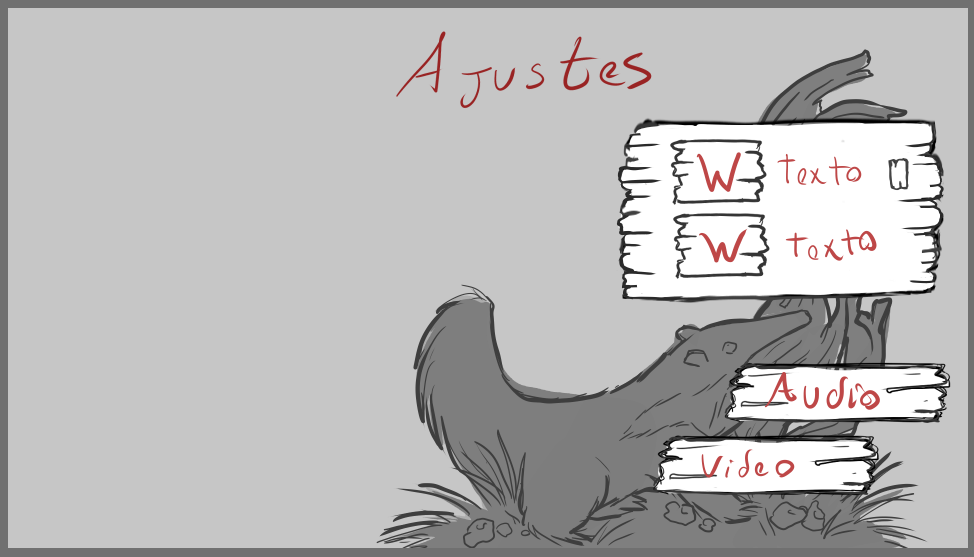 Ajustes
W texto
W texto
Audio
Video